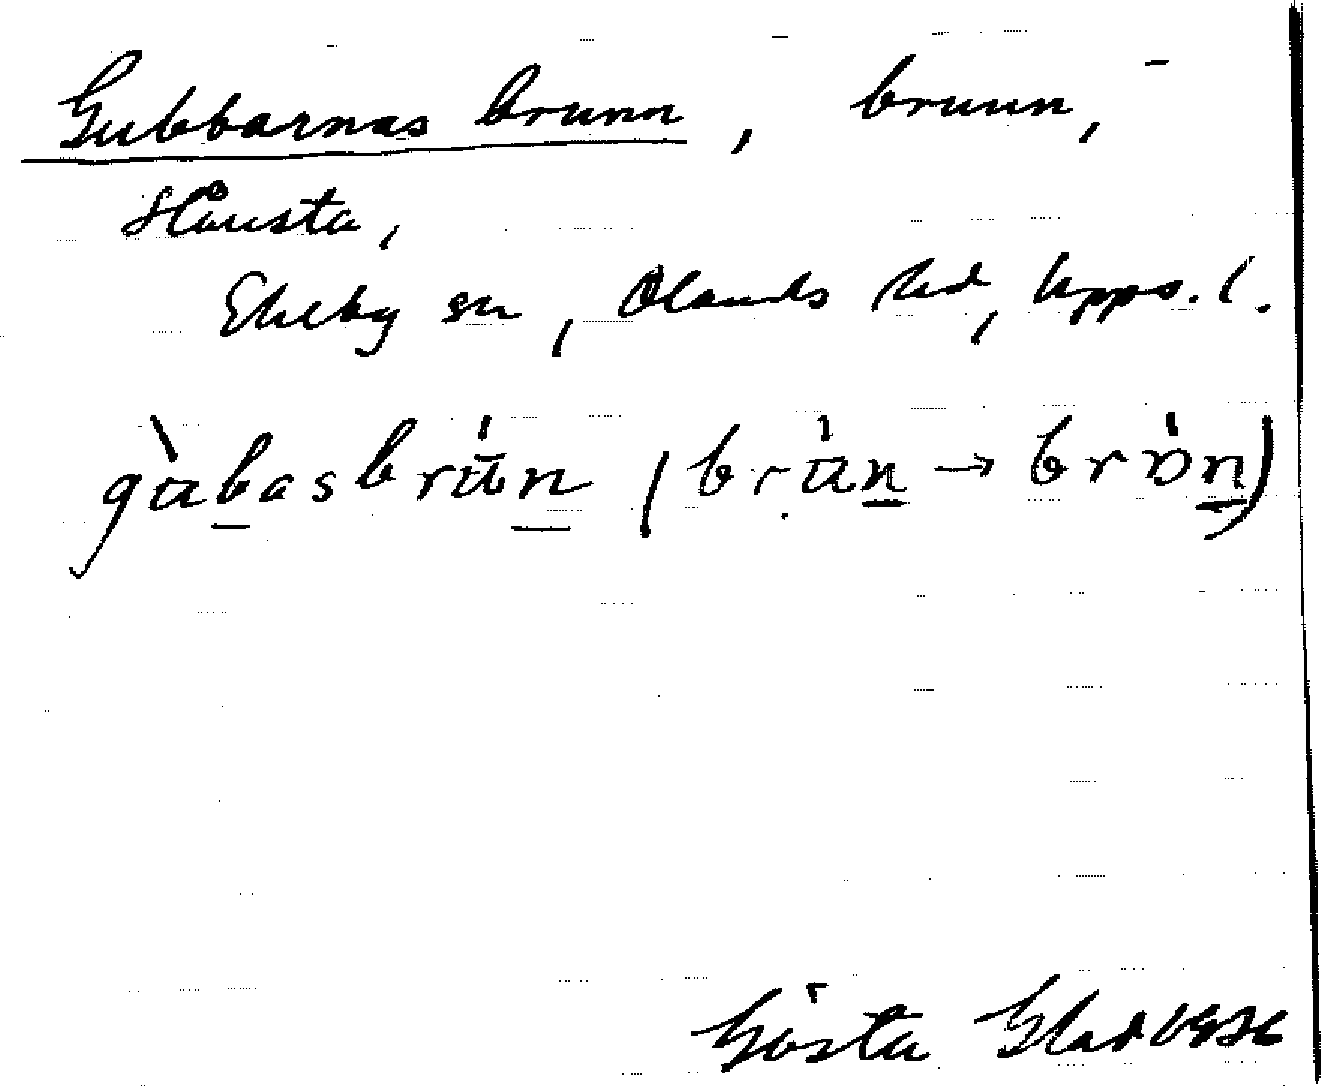 Gubbarnas brunn, brunn,
Hånsta,
Ekeby sn, Olands hd, Upps. l.
gùbasbrún (brún → brón)
Gösta Glad 1936